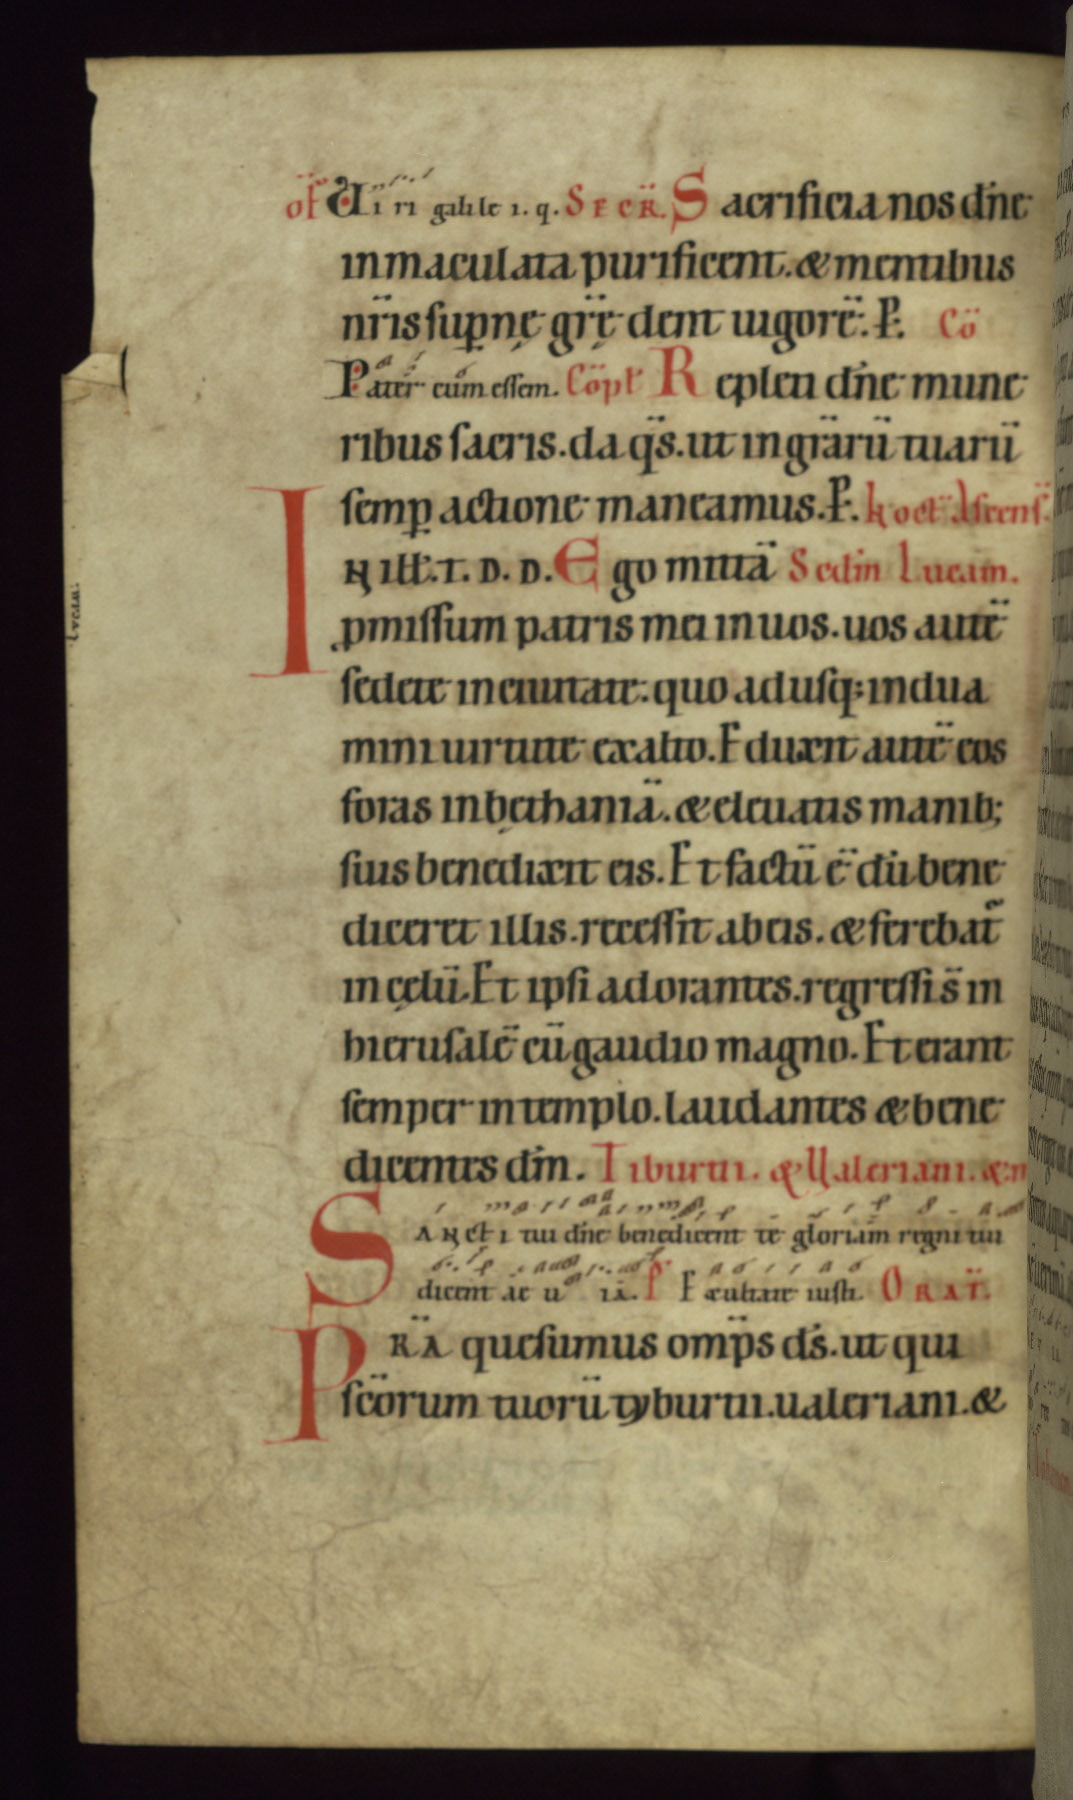 of Viri galile i. q. SECR. Sacrificia nos dñe
inmaculata purificent. & mentibus
nr̃is suꝑnę gr̃ę dent uigorẽ. P. Cõ
Pater cum essem. Cõpl Repleti dñe mune
ribus sacris. da q̃s. ut in grãrũ tuarũ
semꝑ actione maneamus. P. In oct Ascens̃.
IN ILL̃. T. D. D. Ego mittã Scdm Lucam.
ꝓmissum patris mei in uos. uos autẽ
sedete in ciuitate: quo adusq; indua
mini uirtute ex alto. Eduxit autẽ eos
foras in bęthaniã. & eleuatis manib;
suis benedixit eis. Et factũ ẽ dũ bene
diceret illis. recessit ab eis. & ferebat̃
in cęlũ. Et ipsi adorantes. regressi s̃ in
hierusalẽ cũ gaudio magno. Et erant
semper in templo. laudantes & bene
dicentes dm̃. Tiburtii. & Ualeriani. &
SANCTI tui dñe benedicent te gloriam regni tui
dicent ae u ia. P̃ Exultate iusti. ORAT̃.
PRÃ quesumus omp̃s ds̃. ut qui
sc̃orum tuorũ tyburtii. ualeriani. &